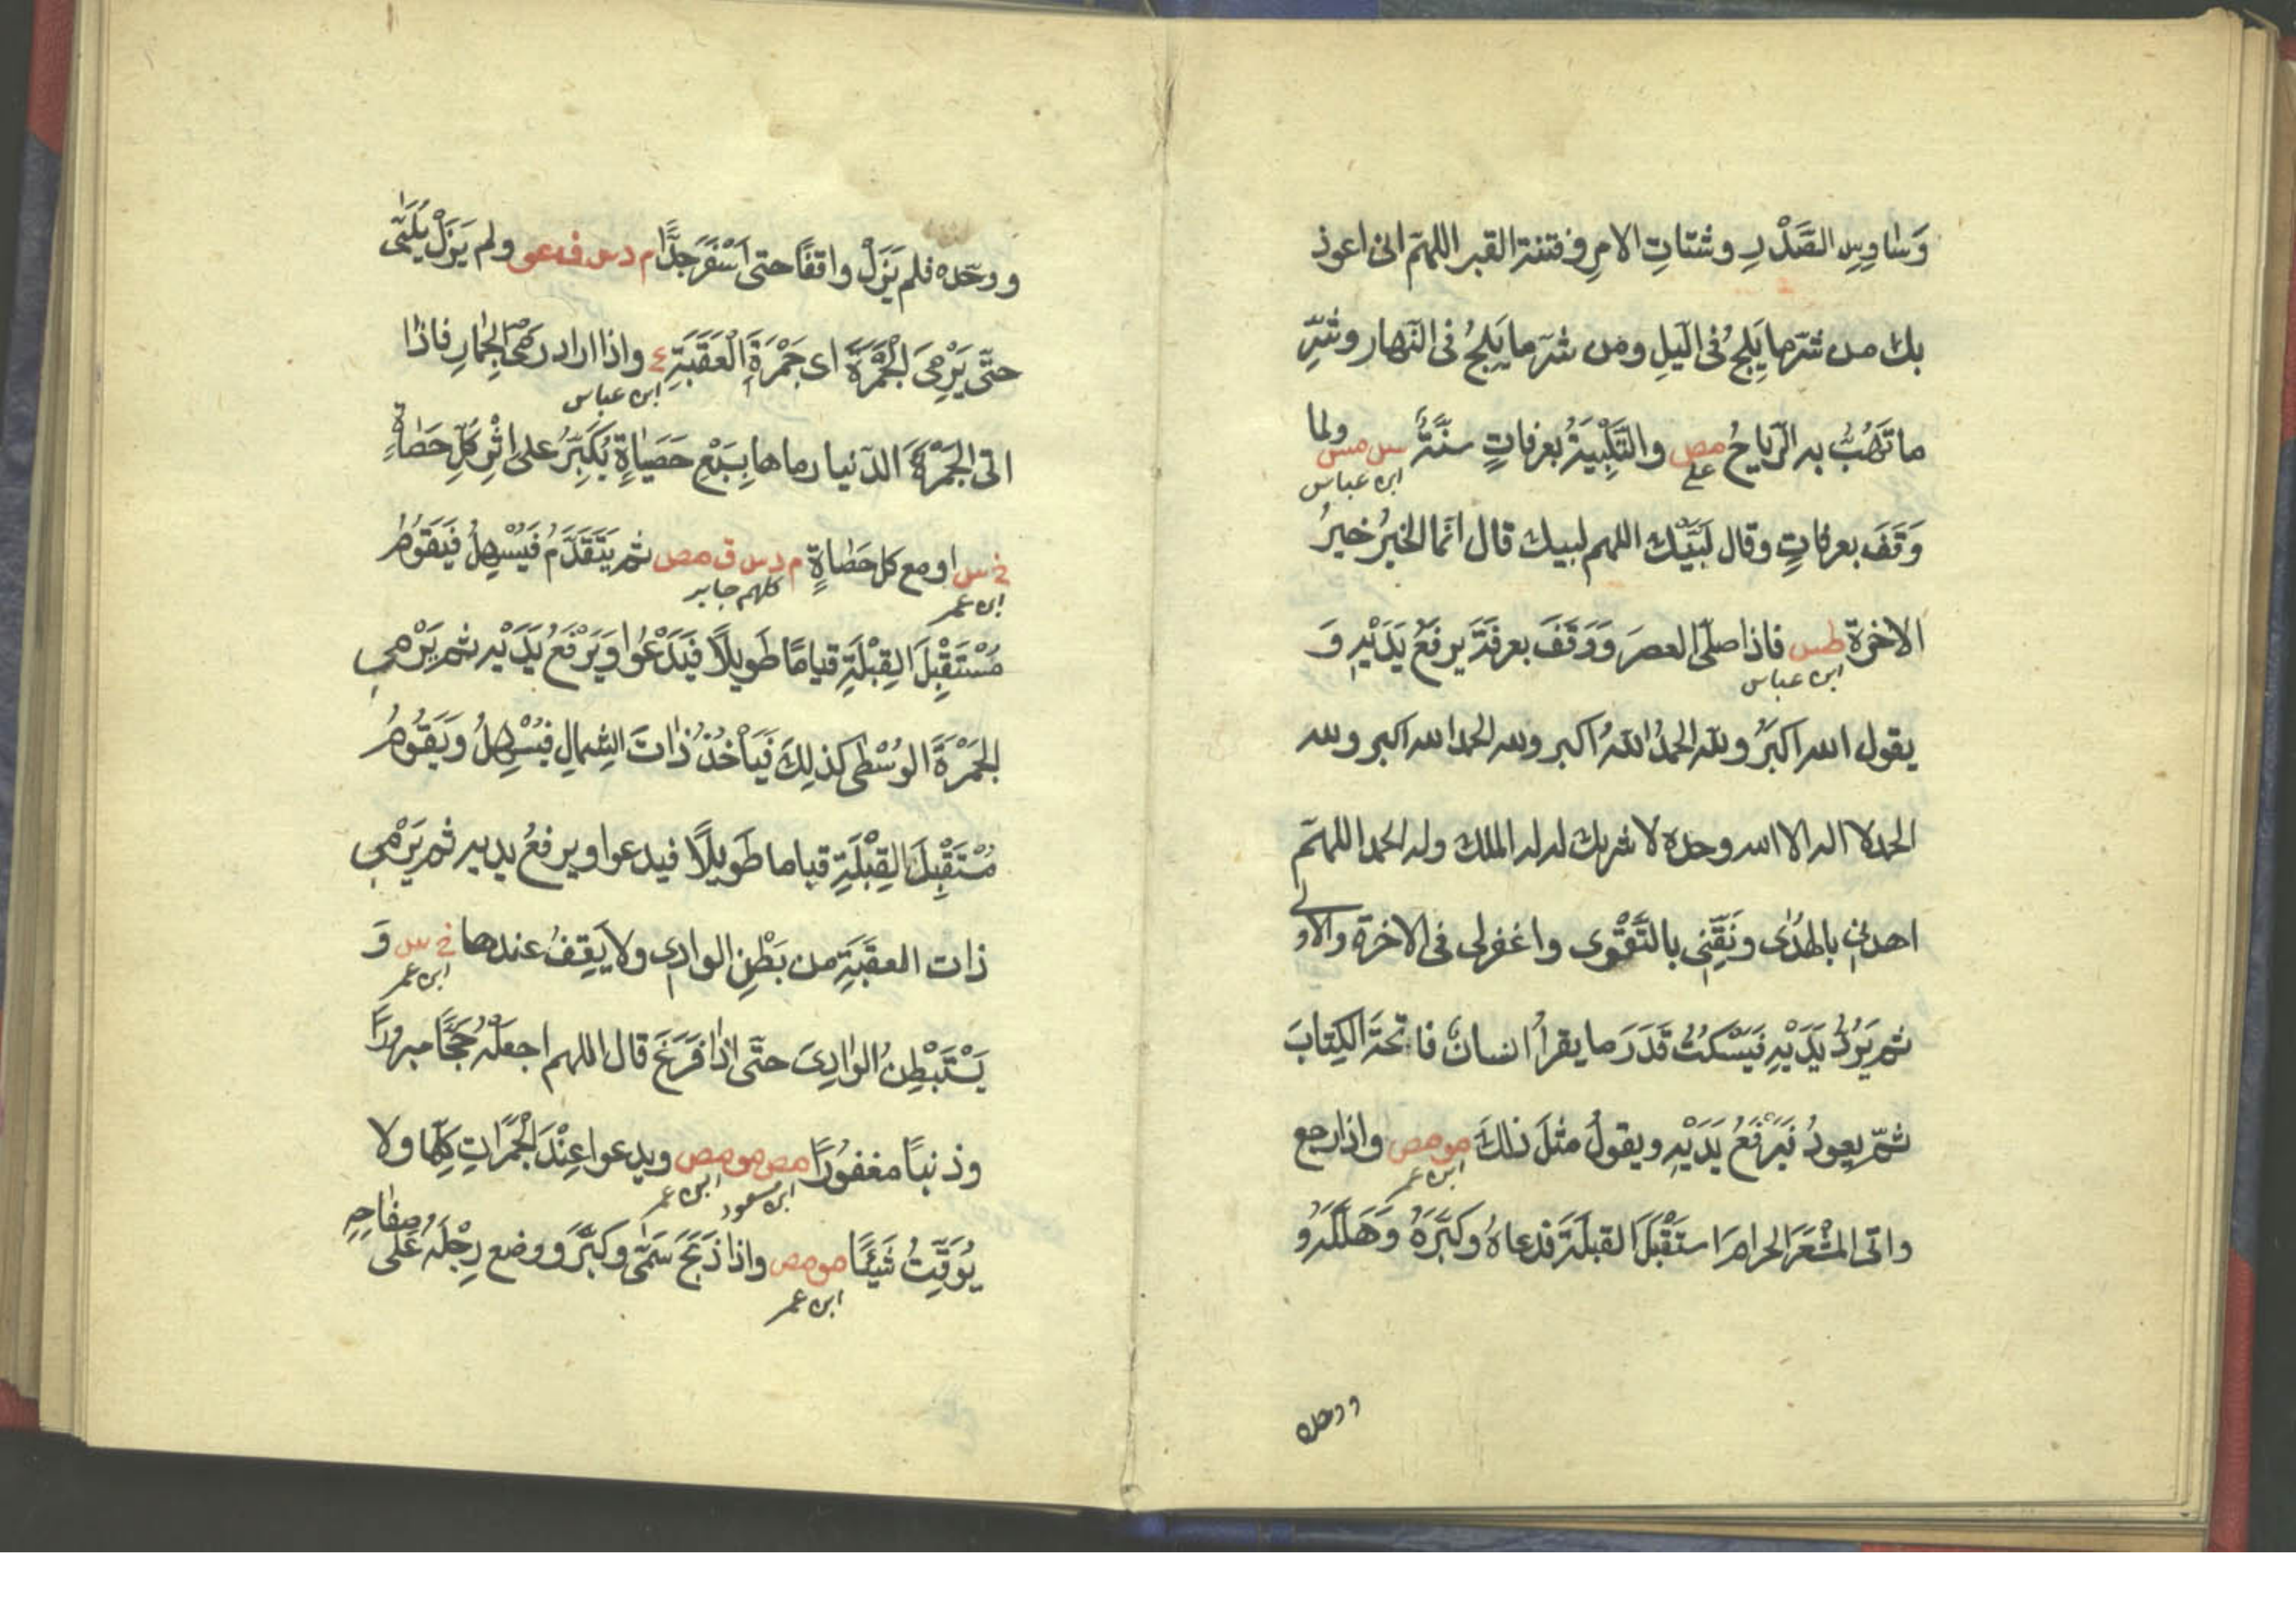 وَسٰاوِسِ الصَّدْرِ وشتاتِ الامرِ وفتنة القبر اللهمّ انى اعوذ
بك من شرّ ما يَلِجُ فى الّيلِ ومن شرّ ما يَلِجُ فى النّهار وشرِّ
ما تَهُبُّ به الرّياحُ مص والتَّلْبِيَةُ بعرفاتٍ سنّةٌ س مس ولما
على
ابن عباس
وَقَفَ بعرفاتٍ وقال لَبَّيْك اللهم لبيك قال انّما الخيرُ خيرُ
الاخرة طس فاذا صلّى العصرَ وَوَقَفَ بعرفَةَ يرفَعُ يَدَيْهِ وَ
ابن عباس
يقول الله اكبرُ ولِلّه الحمدُ اللّهُ اكبر ولله الحمد الله اكبر ولله
الحمد لا اله الا الله وحده لا شريك له له الملك وله الحمد اللهمّ
اهدنى بالهُدٰى ونَقِّنِى بالتَّقْوٰى واغفرلى فى الاخرة والاولى
ثم يَرُدُّ يَدَيْهِ فيَسْكتُ قَدَرَ ما يقرأُ انسانٌ فاتحةَ الكِتابَ
ثمّ يعودُ فيَرْفَعُ يَدَيْهِ ويقولُ مثلَ ذلكَ مو مص واذا رجع
ابن عمر
واتى المشْعَرَ الحرامَ استَقْبَلَ القبلَةَ فدعاهُ وكَبَّرَهُ وَهَلَّلَهُ و
ووحده
ووحّده فلم يَزَلْ واقفًا حتى اَسْفَرَ جِدًّا م د س ق عو ولم يَزَلْ يُلَبِّى
حتّى يَرْمِىَ الْجَمْرَةَ اى جَمْرَةَ الْعَقَبَةِ ع واذا اراد رَمْىَ الجِمارِ فاذا
ابن عباس
اتى الجَمْرَةَ الدّنيا رماها بِسَبْعِ حَصَياةٍ يُكَبِّرُ على اِثْرِ كلِّ حَصاةٍ
خ س او مع كل حَصٰاةٍ م د س ق مص ثم يَتَقَدَّمُ فَيُسْهِلُ فَيَقُومُ
ابن عمر
كلهم جابر
مُسْتَقْبِلَ القِبْلَةِ قيامًا طَويلًا فَيَدْعُوا وَيَرْفَعُ يَدَيْهِ ثم يَرْمِى
الجَمْرَةَ الوُسْطى كذلِكَ فَيَأْخُذُ ذاتَ الشِمالِ فيُسْهِلُ ويَقُومُ
مُسْتَقْبِلَ القِبْلَةِ قياما طَويلًا فيدعوا ويرفعُ يديه ثم يَرْمِى
ذات العقَبَةِ من بَطْنِ الوادِى ولا يَقِفُ عندها خ س وَ
ابن عمر
يَسْتَبْطِنُ الوٰادِىَ حتّى اذا فَرَغَ قال اللهم اجعَلْهُ حَجًّا مبرورًا
وذنبًا مغفورًا مص مو مص ويدعوا عِنْدَ الْجَمَرٰاتِ كلِّها ولا
ابن مسعود
ابن عمر
يُوَقِّتُ شَيْئًا مو مص واذا ذَبَحَ سَمّٰى وكبَّرَ ووضع رِجْلَهُ على صفاحِهِ
ابن عمر